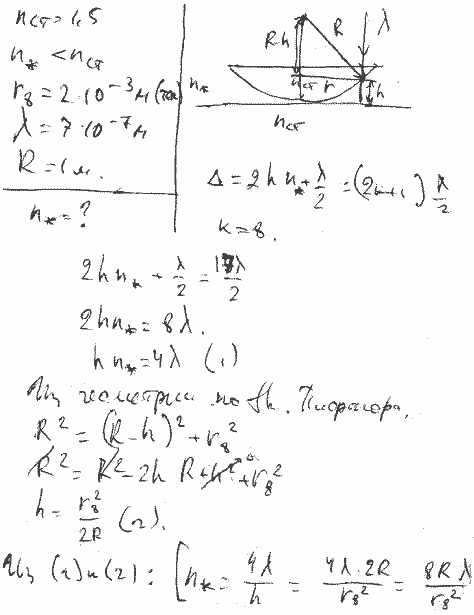 n_ст = 1,5
n_* < n_ст
r_8 = 2·10^-3 м (тем)
λ = 7·10^-7 м
R = 1 м.
n_* = ?
R-h
R
λ
n_*
n_ст
r
h
n_ст
Δ = 2hn_* + λ/2 = (2k+1) λ/2
k = 8.
2hn_* + λ/2 = 17λ/2
2hn_* = 8λ.
hn_* = 4λ (1)
Из геометрии по th. Пифагора.
R^2 = (R-h)^2 + r_8^2
R^2 = R^2 - 2hR + h^2 + r_8^2
h = r_8^2/2R (2).
Из (1) и (2): [n_* = 4λ/h = 4λ·2R/r_8^2 = 8Rλ/r_8^2